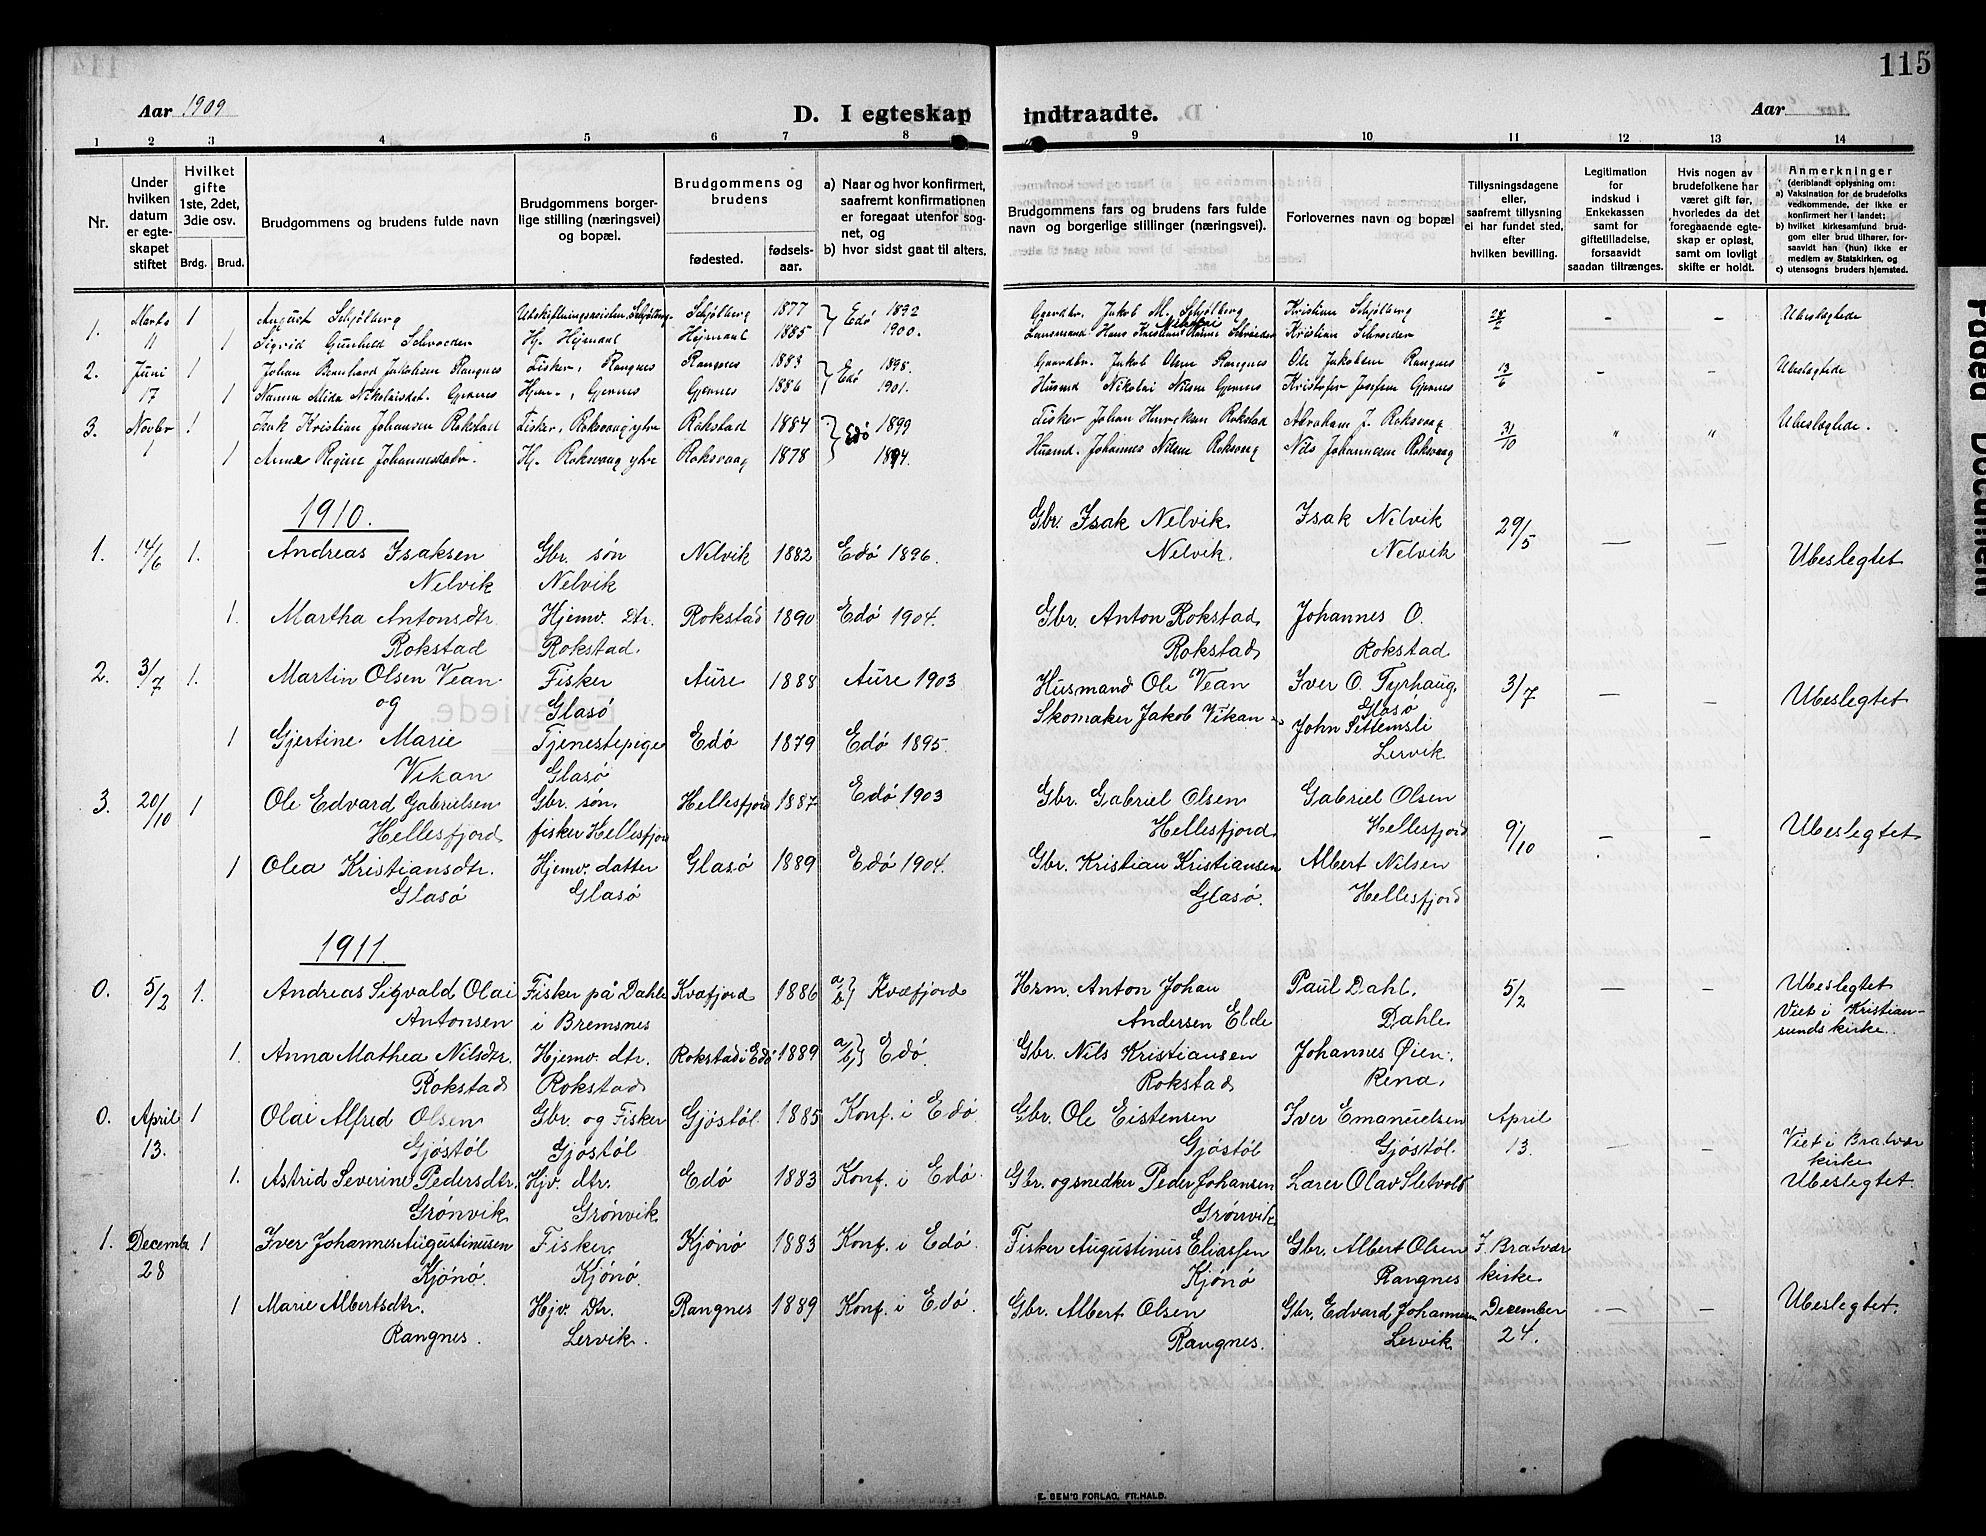 115
Aar 1909
D. I egteskap indtraadte.
Aar
1 2 3 4 5 6 7 8 9 10 11 12 13 14
Nr.
Under hvilken datum er egteskapet stiftet
Hvilket gifte 1ste, 2det, 3die osv.
Brdg. Brud.
Brudgommens og brudens fulde navn
Brudgommens borgerlige stilling (næringsvei) og bopæl.
Brudgommens og brudens
fødested. fødselsaar.
a) Naar og hvor konfirmert, saafremt konfirmationen er foregaat utenfor sognet, og
b) hvor sidst gaat til alters.
Brudgommens fars og brudens fars fulde navn og borgerlige stillinger (næringsvei).
Forlovernes navn og bopæl
Tillysningsdagene eller, saafremt tillysning ei har fundet sted, efter hvilken bevilling.
Legitimation for indskud i Enkekassen samt for giftetilladelse, forsaavidt saadan tiltrænges.
Hvis nogen av brudefolkene har været gift før, hvorledes da det foregaaende egteskap er opløst, samt om lovligt skifte er holdt.
Anmerkninger (deriblandt oplysning om:
a) Vaksination for de brudefolks vedkommende, der ikke er konfirmert her i landet;
b) hvilket kirkesamfund brudgom eller brud tilhører, forsaavidt han (hun) ikke er medlem av Statskirken, og
c) utensogns bruders hjemsted.
1. Marts 11 1 August Schjølberg Schjølberg 1877 Edö 1892 Gaardbr. Jakob M. Schjølberg Kristian Schjølberg — — Ubeslægtede
1 Sigrid Gunhild Schrøder Hj. Hejmaal Hejmaal 1885 1900. Lensmand Hans Kristian Schrøder Kristian Schrøder
2. Juni 17 1 Johan Bernhard Jakobsen Rangnes Fisker, Rangnes Rangnes 1883 Edö 1898. Gaardbr. Jakob Olsen Rangnes Ole Jakobsen Rangnes 13/6 - - Ubeslægtede
1 Nanna Mida Nikolaisdt. Gjernes Hjem., Gjernes Gjernes 1886 1901. Husmd Nikolai Nilsen Gjernes Kristofer Josefsen Gjernes
3. Novbr 1 Isak Kristian Johansen Rokstad Fisker, Roksvaag ytre Rokstad 1884 Edö 1899 Fisker Johan Henriksen Rokstad Abraham J. Roksvaag 31/10 " " Ubeslægtede.
1 Anne Regine Johannesdatr. Hj. Roksvaag ytre Roksvaag 1878 1894. Husmd. Johannes Nilsen Roksvaag Nils Johannesen Roksvaag
1910.
1. 14/6 1. Andreas Isaksen Gbr. søn Nelvik 1882 Edö 1896. Gbr. Isak Nelvik. Isak Nelvik 29/5 — — Ubeslegtet
Nelvik Nelvik Nelvik. Nelvik
1. Martha Antonsdtr. Hjemv. Dtr. Rokstad 1890 Edö 1904. Gbr. Anton Rokstad Johannes O.
Rokstad Rokstad. Rokstad Rokstad.
2. 3/7 1. Martin Olsen Vean Fisker Aure 1888 Aure 1903 Husmand Ole Vean Iver O. Tyrhaug 3/7 — - Ubeslegtet
og Glasö Skomaker Jakob Vikan Glasö
1 Gjertine Marie Tjenestepige Edö 1879 Edö 1895. John Settemsli
Vikan Glasö Lervik
3. 20/10 1 Ole Edvard Gabrielsen Gbr. søn, Hellesfjord 1887 Edö 1903 Gbr. Gabriel Olsen Gabriel Olsen 9/10 - - Ubeslegtet
Hellesfjord fisker Hellesfjord Hellesfjord Hellesfjord
1 Olea Kristiansdtr. Hjemv. datter Glasö 1889 Edö 1904. Gbr. Kristian Kristiansen Albert Nilsen
Glasö Glasö Glasö. Hellesfjord
1911.
0. 5/2 1. Andreas Sigvald Olai Fisker på Dahle Kvæfjord 1886 a/b} Kvæfjord Hrm. Anton Johan Paul Dahl. 5/2 — — Ubeslegtet
Antonsen i Bremsnes Andersen Elde Dahle Viet i Kristiansunds kirke.
1. Anna Mathea Nilsdtr. Hjemv. dtr. Rokstad i Edö 1889 a/b} Edö. Gbr. Nils Kristiansen Johannes Øien.
Rokstad Rokstad Rokstad Rena.
0. April 13. 1 Olai Alfred Olsen Gbr. og Fisker Gjöstöl 1885 Konf. i Edö Gbr. Ole Eistensen Iver Emanuelsen April 13. — — Viet i Bratvær kirke
Gjöstöl Gjöstöl Gjöstöl Gjöstöl.
1. Astrid Severine Pedersdtr. Hjv. dtr. Edö 1883 Konf. i Edö. Gbr. og snedker Peder Johansen Lærer Olav Sletvold Ubeslegtet.
Grönvik Grönvik Grönvik
1. December 28 1 Iver Johannes Augustinusen Fisker. Kjönö 1883 Konf. i Edö. Fisker Augustinus Eliassen Gbr. Albert Olsen I Bratvær
Kjönö. Kjönö. Kjönö Rangnes kirke
1 Marie Albertsdtr. Hjv. Dtr. Rangnes 1889 Konf. i Edö. Gbr. Albert Olsen Gbr. Edvard Johannesen December — — Ubeslegtet.
Rangnes. Lervik. Rangnes. Lervik 24.
E. SEM'S FORLAG, FR.HALD.
Faded Document